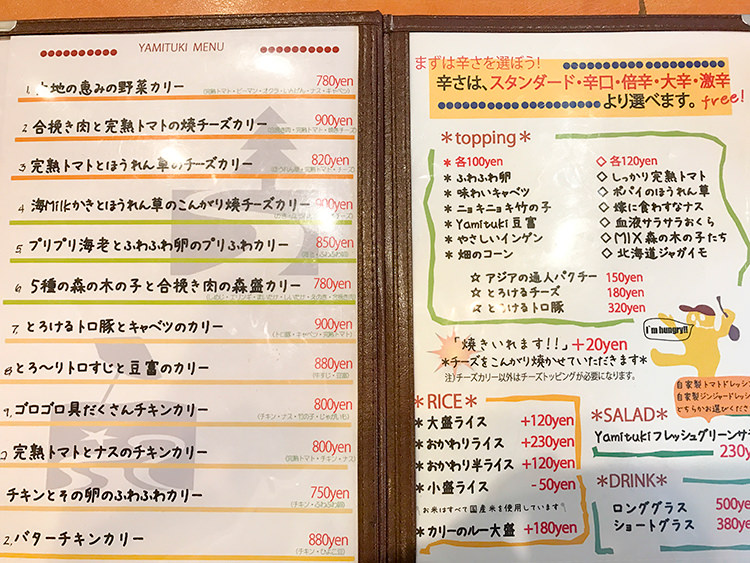 YAMITUKI MENU
1. 大地の恵みの野菜カリー 780yen
(完熟トマト・ピーマン・オクラ・いんげん・ナス・キャベツ)
2 合挽き肉と完熟トマトの焼チーズカリー 900yen
3 完熟トマトとほうれん草のチーズカリー 820yen
4 海Milkかきとほうれん草のこんがり焼チーズカリー 900yen
5 プリプリ海老とふわふわ卵のプリふわカリー 850yen
6 5種の森の木の子と合挽き肉の森盛カリー 780yen
7. とろけるトロ豚とキャベツのカリー 900yen
(トロ豚・キャベツ・完熟トマト)
8 とろ〜りトロすじと豆富のカリー 880yen
(牛すじ・豆富)
9, ゴロゴロ具だくさんチキンカリー 800yen
(チキン・ナス・竹の子・じゃがいも)
完熟トマトとナスのチキンカリー 800yen
(完熟トマト・チキン・ナス)
チキンとその卵のふわふわカリー 750yen
(チキン・ふわふわ卵)
2. バターチキンカリー 880yen
(チキン・ひよこ豆)
まずは辛さを選ぼう!
辛さは、スタンダード・辛口・倍辛・大辛・激辛
より選べます。 free!
*topping*
* 各100yen
* ふわふわ卵
* 味わいキャベツ
* ニョキニョキ竹の子
* Yamituki豆富
* やさしいインゲン
* 畑のコーン
◇ 各120yen
◇ しっかり完熟トマト
◇ ポパイのほうれん草
◇ 嫁に食わすなナス
◇ 血液サラサラおくら
◇ MIX森の木の子たち
◇ 北海道ジャガイモ
☆ アジアの通人パクチー 150yen
☆ とろけるチーズ 180yen
☆ とろけるトロ豚 320yen
「焼きいれます!!」+20yen
*チーズをこんがり焼かせていただきます*
注)チーズカリー以外はチーズトッピングが必要になります。
I'm hungry!!
自家製トマトドレッシ
自家製ジンジャードレッ
どちらかお選びくださ
*RICE*
* 大盛ライス +120yen
* おかわりライス +230yen
* おかわり半ライス +120yen
* 小盛ライス -50yen
お米はすべて国産米を使用しています
* カリーのルー大盛 +180yen
*SALAD*
Yamitukiフレッシュグリーンサラ
230y
*DRINK*
ロンググラス 500ye
ショートグラス 380ye